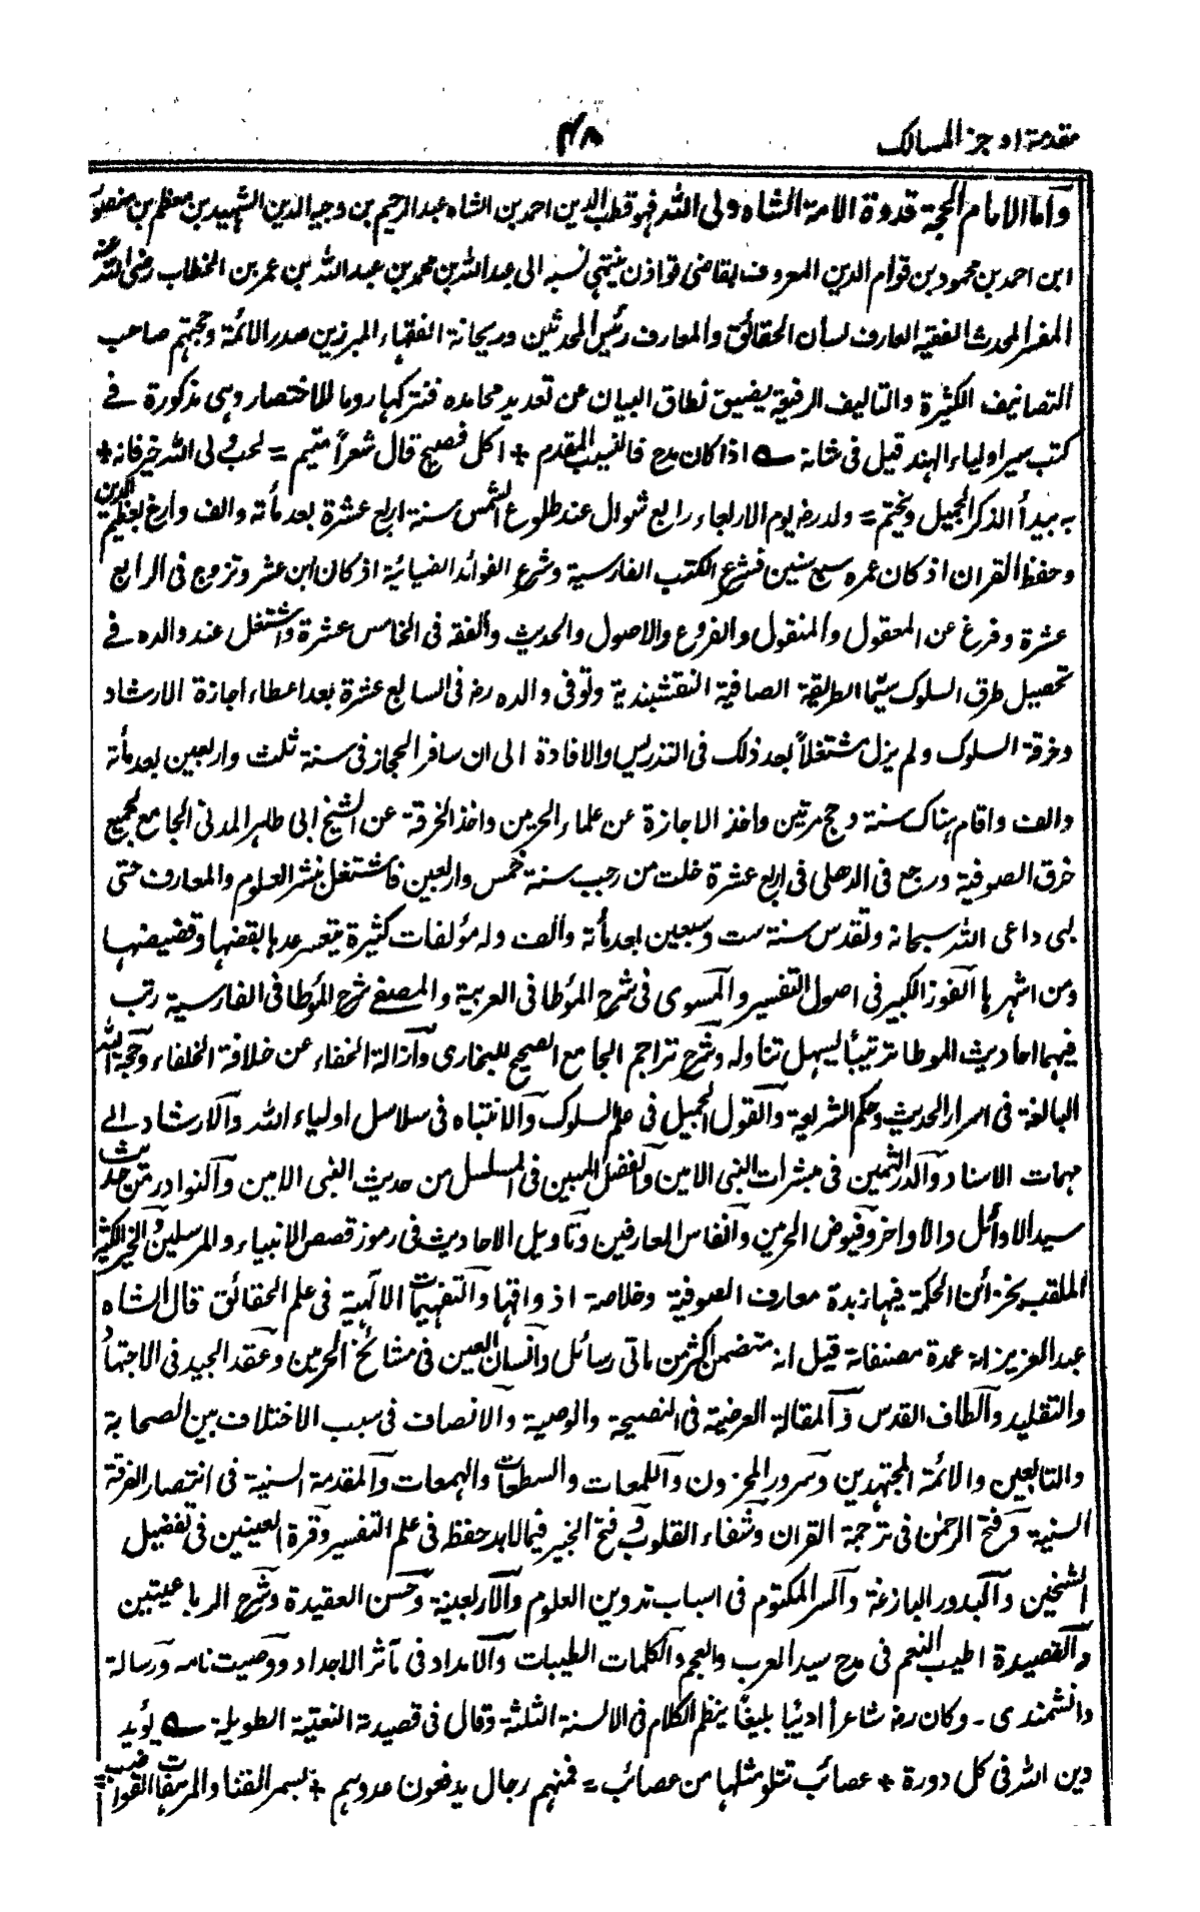 مقدمة اوجز المسالك ٤٨
وأما الامام الحجة قدوة الامة الشاه ولى الله فهو قطب الدين احمد بن الشاه عبد الرحيم بن وجيه الدين الشهيد بن معظم بن منصور
ابن احمد بن محمود بن قوام الدين المعروف بقاضى قواذن ينتهى نسبه الى عبد الله بن محمد بن عبد الله بن عمر بن الخطاب رضى الله عنه
المفسر المحدث الفقيه العارف لسان الحقائق والمعارف رئيس المحدثين وريحانة الفقهاء المبرزين صدر الائمة وحجتهم صاحب
التصانيف الكثيرة والتاليف الرفيقة يضيق نطاق البيان عن تعديد محامده فنتركها روما للاختصار وهى مذكورة فى
كتب سير اولياء الهند قيل فى شانه ؎ اذا كان مدح فالنسيب المقدم + اكل فصيح قال شعراً متيم = لحب ولى الله خير فانه +
به يبدأ الذكر الجميل ويختم = ولد رح يوم الاربعاء رابع شوال عند طلوع الشمس سنة اربع عشرة بعد مأته والف وأرخ بعظيم الدين
وحفظ القران اذ كان عمره سبع سنين فشرع الكتب الفارسية وشرع الفوائد الضيائية اذ كان ابن عشر وتزوج فى الرابع
عشرة وفرغ عن المعقول والمنقول والفروع والاصول والحديث والفقه فى الخامس عشرة واشتغل عند والده فى
تحصيل طرق السلوك سيما الطريقة الصافية النقشبندية وتوفى والده رح فى السابع عشرة بعد اعطاء اجازة الارشاد
وخرقة السلوك ولم يزل مشتغلاً بعد ذلك فى التدريس والافادة الى ان سافر الحجاز فى سنة ثلث واربعين بعد مأته
والف واقام هناك سنة وحج مرتين واخذ الاجازة عن علماء الحرمين واخذ الخرقة عن الشيخ ابى طاهر المدنى الجامع لجميع
خرق الصوفية ورجع فى الدهلى فى اربع عشرة خلت من رجب سنة خمس واربعين فاشتغل بنشر العلوم والمعارف حتى
لبى داعى الله سبحانه وتقدس سنة ست وسبعين بعد مأته والف وله مؤلفات كثيرة يتعسر عدها بقضها وقضيضها
ومن اشهرها الفوز الكبير فى اصول التفسير والمسوى فى شرح المؤطا فى العربية والمصفى شرح المؤطا فى الفارسية رتب
فيهما احاديث الموطا ترتيباً ليسهل تناوله وشرح تراجم الجامع الصحيح للبخارى وازالة الخفاء عن خلافة الخلفاء وحجة الله
البالغة فى اسرار الحديث وحكم الشريعة والقول الجميل فى علم السلوك والانتباه فى سلاسل اولياء الله والارشاد الى
مهمات الاسناد والدر الثمين فى مبشرات النبى الامين والفضل المبين فى المسلسل من حديث النبى الامين والنوادر من حديث
سيد الاوائل والاواخر وفيوض الحرمين وانفاس العارفين وتاويل الاحاديث فى رموز قصص الانبياء والمرسلين والخير الكثير
الملقب بخزائن الحكمة فيها زبدة معارف الصوفية وخلاصة اذواقها والتفهيمات الالهية فى علم الحقائق قال الشاه
عبد العزيز انه عمدة مصنفاته قيل انه متضمن اكثر من ماتى رسائل وانسان العين فى مشائخ الحرمين وعقد الجيد فى الاجتهاد
والتقليد والطاف القدس والمقالة العرضية فى النصيحة والوصية والانصاف فى سبب الاختلاف بين الصحابة
والتابعين والائمة المجتهدين وسرور المحزون واللمعات والسطعات والهمعات والمقدمة السنية فى انتصار الفرقة
السنية وفتح الرحمن فى ترجمة القران وشفاء القلوب وفتح الخبير فيما لابد حفظه فى علم التفسير وقرة العينين فى تفضيل
الشيخين والبدور البازغة والسر المكتوم فى اسباب تدوين العلوم والاربعينة وحسن العقيدة وشرح الرباعيتين
والقصيدة اطيب النغم فى مدح سيد العرب والعجم والكلمات الطيبات والامداد فى مآثر الاجداد ووصيت نامه ورسالة
دانشمندى ـ وكان رح شاعراً أدئبا بليغاً ينظم الكلام فى الالسنة الثلثة وقال فى قصيدة النعتية الطويلة ؎ يؤيد
دين الله فى كل دورة + عصائب تتلو مثلها من عصائب = فمنهم رجال يدفعون عدوهم + بسمر القنا والمرهفات القواضب =